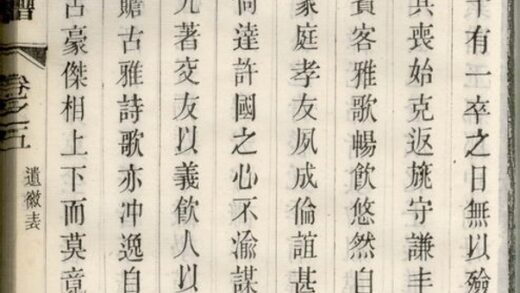 十有一卒之日無以殮
其喪始克返旐守謙丰
賓客雅歌暢飲悠然自
家庭孝友夙成倫誼甚
尚達許國之心不渝謀
尤著交友以義飲人以
贍古雅詩歌亦冲逸自
古豪傑相上下而莫竟
卷之五
遺徽表